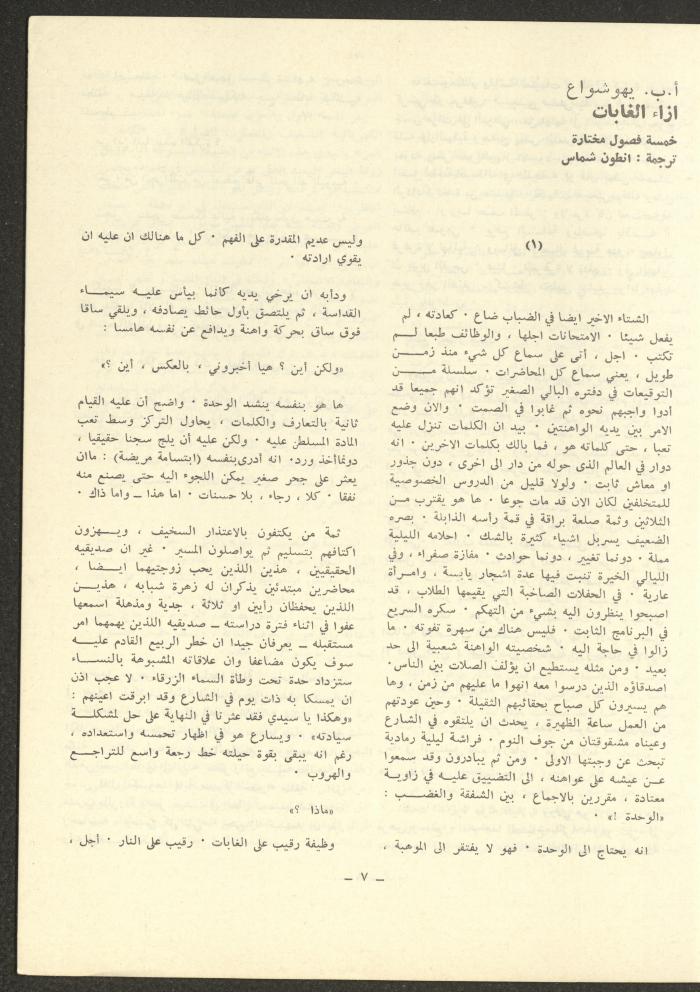 أ.ب. يهوشواع
ازاء الغابات
خمسة فصول مختارة
ترجمة : انطون شماس
(١)
الشتاء الاخير ايضا في الضباب ضاع · كعادته ، لم
يفعل شيئا · الامتحانات اجلها ، والوظائف طبعا لــم
تكتب · اجل ، أتى على سماع كل شيء منذ زمــــن
طويل ، يعني سماع كل المحاضرات · سلسلة مــــن
التوقيعات في دفتره البالي الصغير تؤكد انهم جميعا قد
أدوا واجبهم نحوه ثم غابوا في الصمت · والان وضع
الامر بين يديه الواهنتين · بيد ان الكلمات تنزل عليه
تعبا ، حتى كلماته هو ، فما بالك بكلمات الاخرين · انه
دوار في العالم الذى حوله من دار الى اخرى ، دون جذور
او معاش ثابت · ولولا قليل من الدروس الخصوصية
للمتخلفين لكان الان قد مات جوعا · ها هو يقترب مــن
الثلاثين وثمة صلعة براقة في قمة رأسه الذابلة · بصره
الضعيف يسربل اشياء كثيرة بالشك · احلامه الليلية
مملة · دونما تغيير ، دونما حوادث · مفازة صفراء ، وفي
الليالي الخيرة تنبت فيها عدة اشجار يابسة ، وامــرأة
عارية · في الحفلات الصاخبة التي يقيمها الطلاب ، قد
اصبحوا ينظرون اليه بشيء من التهكم · سكره السريع
في البرنامج الثابت · فليس هناك من سهرة تفوته · ما
زالوا في حاجة اليه · شخصيته الواهنة شعبية الى حد
بعيد · ومن مثله يستطيع ان يؤلف الصلات بين الناس·
اصدقاؤه الذين درسوا معه انهوا ما عليهم من زمن ، وها
هم يسيرون كل صباح بحقائبهم الثقيلة · وحين عودتهم
من العمل ساعة الظهيرة ، يحدث ان يلتقوه في الشارع
وعيناه مشقوقتان من جوف النوم · فراشة ليلية رمادية
تبحث عن وجبتها الاولى · ومن ثم يبادرون وقد سمعوا
عــن عيشه على عواهنه ، الى التضييق عليــه في زاويــة
معتادة ، مقررين بالاجماع ، بين الشفقة والغضــب :
«الوحدة !» ·
انه يحتاج الى الوحدة · فهو لا يفتقر الى الموهبة ،
وليس عديم المقدرة على الفهم · كل ما هنالك ان عليه ان
يقوي ارادته ·
ودأبه ان يرخي يديه كانما بيأس عليــه سيمــاء
القداسة ، ثم يلتصق بأول حائط يصادفه ، ويلقي ساقا
فوق ساق بحركة واهنة ويدافع عن نفسه هامسا :
«ولكن أين ؟ هيا أخبروني ، بالعكس ، أين ؟»
ها هو بنفسه ينشد الوحدة · واضح أن عليه القيام
ثانية بالتعارف والكلمات ، يحاول التركز وسط تعب
المادة المسلطن عليه · ولكن عليه أن يلج سجنا حقيقيا ،
دونماأخذ ورد· انه أدرى‌بنفسه (ابتسامة مريضة) : ماان
يعثر على جحر صغير يمكن اللجوء اليه حتى يصنع منه
نفقا · كلا ، رجاء ، بلا حسنات · اما هذا ــ واما ذاك ·
ثمة من يكتفون بالاعتذار السخيف ، ويــهزون
اكتافهم بتسليم ثم يواصلون المسير · غير ان صديقيه
الحقيقيين ، هذين اللذين يحب زوجتيهما ايــضا ،
محاضرين مبتدئين يذكران له زهرة شبابه ، هذيــن
اللذين يحفظان رأيين او ثلاثة ، جدية ومذهلة اسمعها
عفوا في اثناء فترة دراسته ــ صديقيه اللذين يهمهما امر
مستقبله ــ يعرفان جيدا ان خطر الربيع القادم عليــه
سوف يكون مضاعفا وان علاقاته المشبوهة بالنســاء
ستزداد حدة تحت وطأة السماء الزرقاء · لا عجب اذن
ان يمسكا به ذات يوم في الشارع وقد ابرقت اعينهم :
«وهكذا يا سيدي فقد عثرنا في النهاية على حل لمشكلــة
سيادته» · ويسارع هو في اظهار تحمسه واستعداده ،
رغم انه يبقى بقوة حيلته خط رجعة واسع للتراجــع
والهروب ·
«ماذا ؟»
وظيفة رقيب على الغابات · رقيب على النار · أجل ،
ــ ٧ ــ